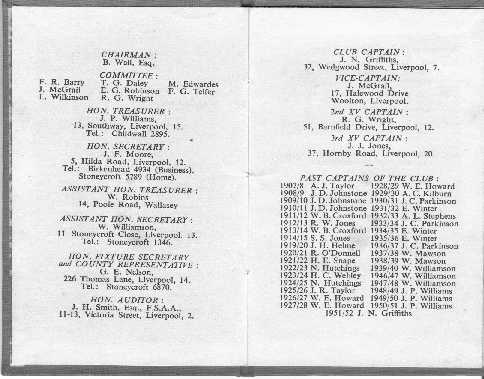 CHAIRMAN :
B. Wall, Esq.
COMMITTEE :
F. R. Barry T. G. Daley M. Edwardes
J. McGrail E. G. Robinson P. G. Telfer
L. Wilkinson R. G. Wright
HON. TREASURER :
J. P. Williams,
13, Southway, Liverpool, 15.
Tel.: Childwall 2895.
HON. SECRETARY :
J. F. Moore,
5, Hilda Road, Liverpool, 12.
Tel.: Birkenhead 4934 (Business).
Stoneycroft 5789 (Home).
ASSISTANT HON. TREASURER :
W. Robins
14, Poole Road, Wallasey
ASSISTANT HON. SECRETARY :
W. Williamson,
11 Stoneycroft Close, Liverpool, 13.
Tel.: Stoneycroft 1346.
HON. FIXTURE SECRETARY
and COUNTY REPRESENTATIVE :
G. E. Nelson,
226 Thomas Lane, Liverpool, 14.
Tel.: Stoneycroft 6870.
HON. AUDITOR :
J. H. Smith, Esq., F.S.A.A.,
11-13, Victoria Street, Liverpool, 2.
CLUB CAPTAIN :
J. N. Griffiths,
37, Wedgwood Street, Liverpool, 7.
VICE-CAPTAIN:
J. McGrail,
17, Halewood Drive
Woolton, Liverpool.
3rd XV CAPTAIN :
R. G. Wright,
51, Barnfield Drive, Liverpool, 12.
3rd XV CAPTAIN :
J. J. Jones,
37, Hornby Road, Liverpool, 20
PAST CAPTAINS OF THE CLUB :
1907/8 A. J. Taylor 1928/29 W. E. Howard
1908/9 J. D. Johnstone 1929/30 A. C. Kilburn
1909/10 J. D. Johnstone 1930/31 J. C. Parkinson
1910/11 J. D. Johnstone 1931/32 E. Winter
1911/12 W. B. Croxford 1932/33 A. L. Stephens
1912/13 R. W. Jones 1933/34 J. C. Parkinson
1913/14 W. B. Croxford 1934/35 E. Winter
1914/15 S. S. Jones 1935/36 E. Winter
1919/20 J. H. Helme 1936/37 J. C. Parkinson
1920/21 R. O'Donnell 1937/38 W. Mawson
1921/22 H. E. Snape 1938/39 W. Mawson
1922/23 N. Hutchings 1939/40 W. Williamson
1923/24 H. C. Webley 1946/47 W. Williamson
1924/25 N. Hutchings 1947/48 W. Williamson
1925/26 J. R. Taylor 1948/49 J. P. Williams
1926/27 W. E. Howard 1949/50 J. P. Williams
1927/28 W. E. Howard 1950/51 J. P. Williams
1951/52 J. N. Griffiths